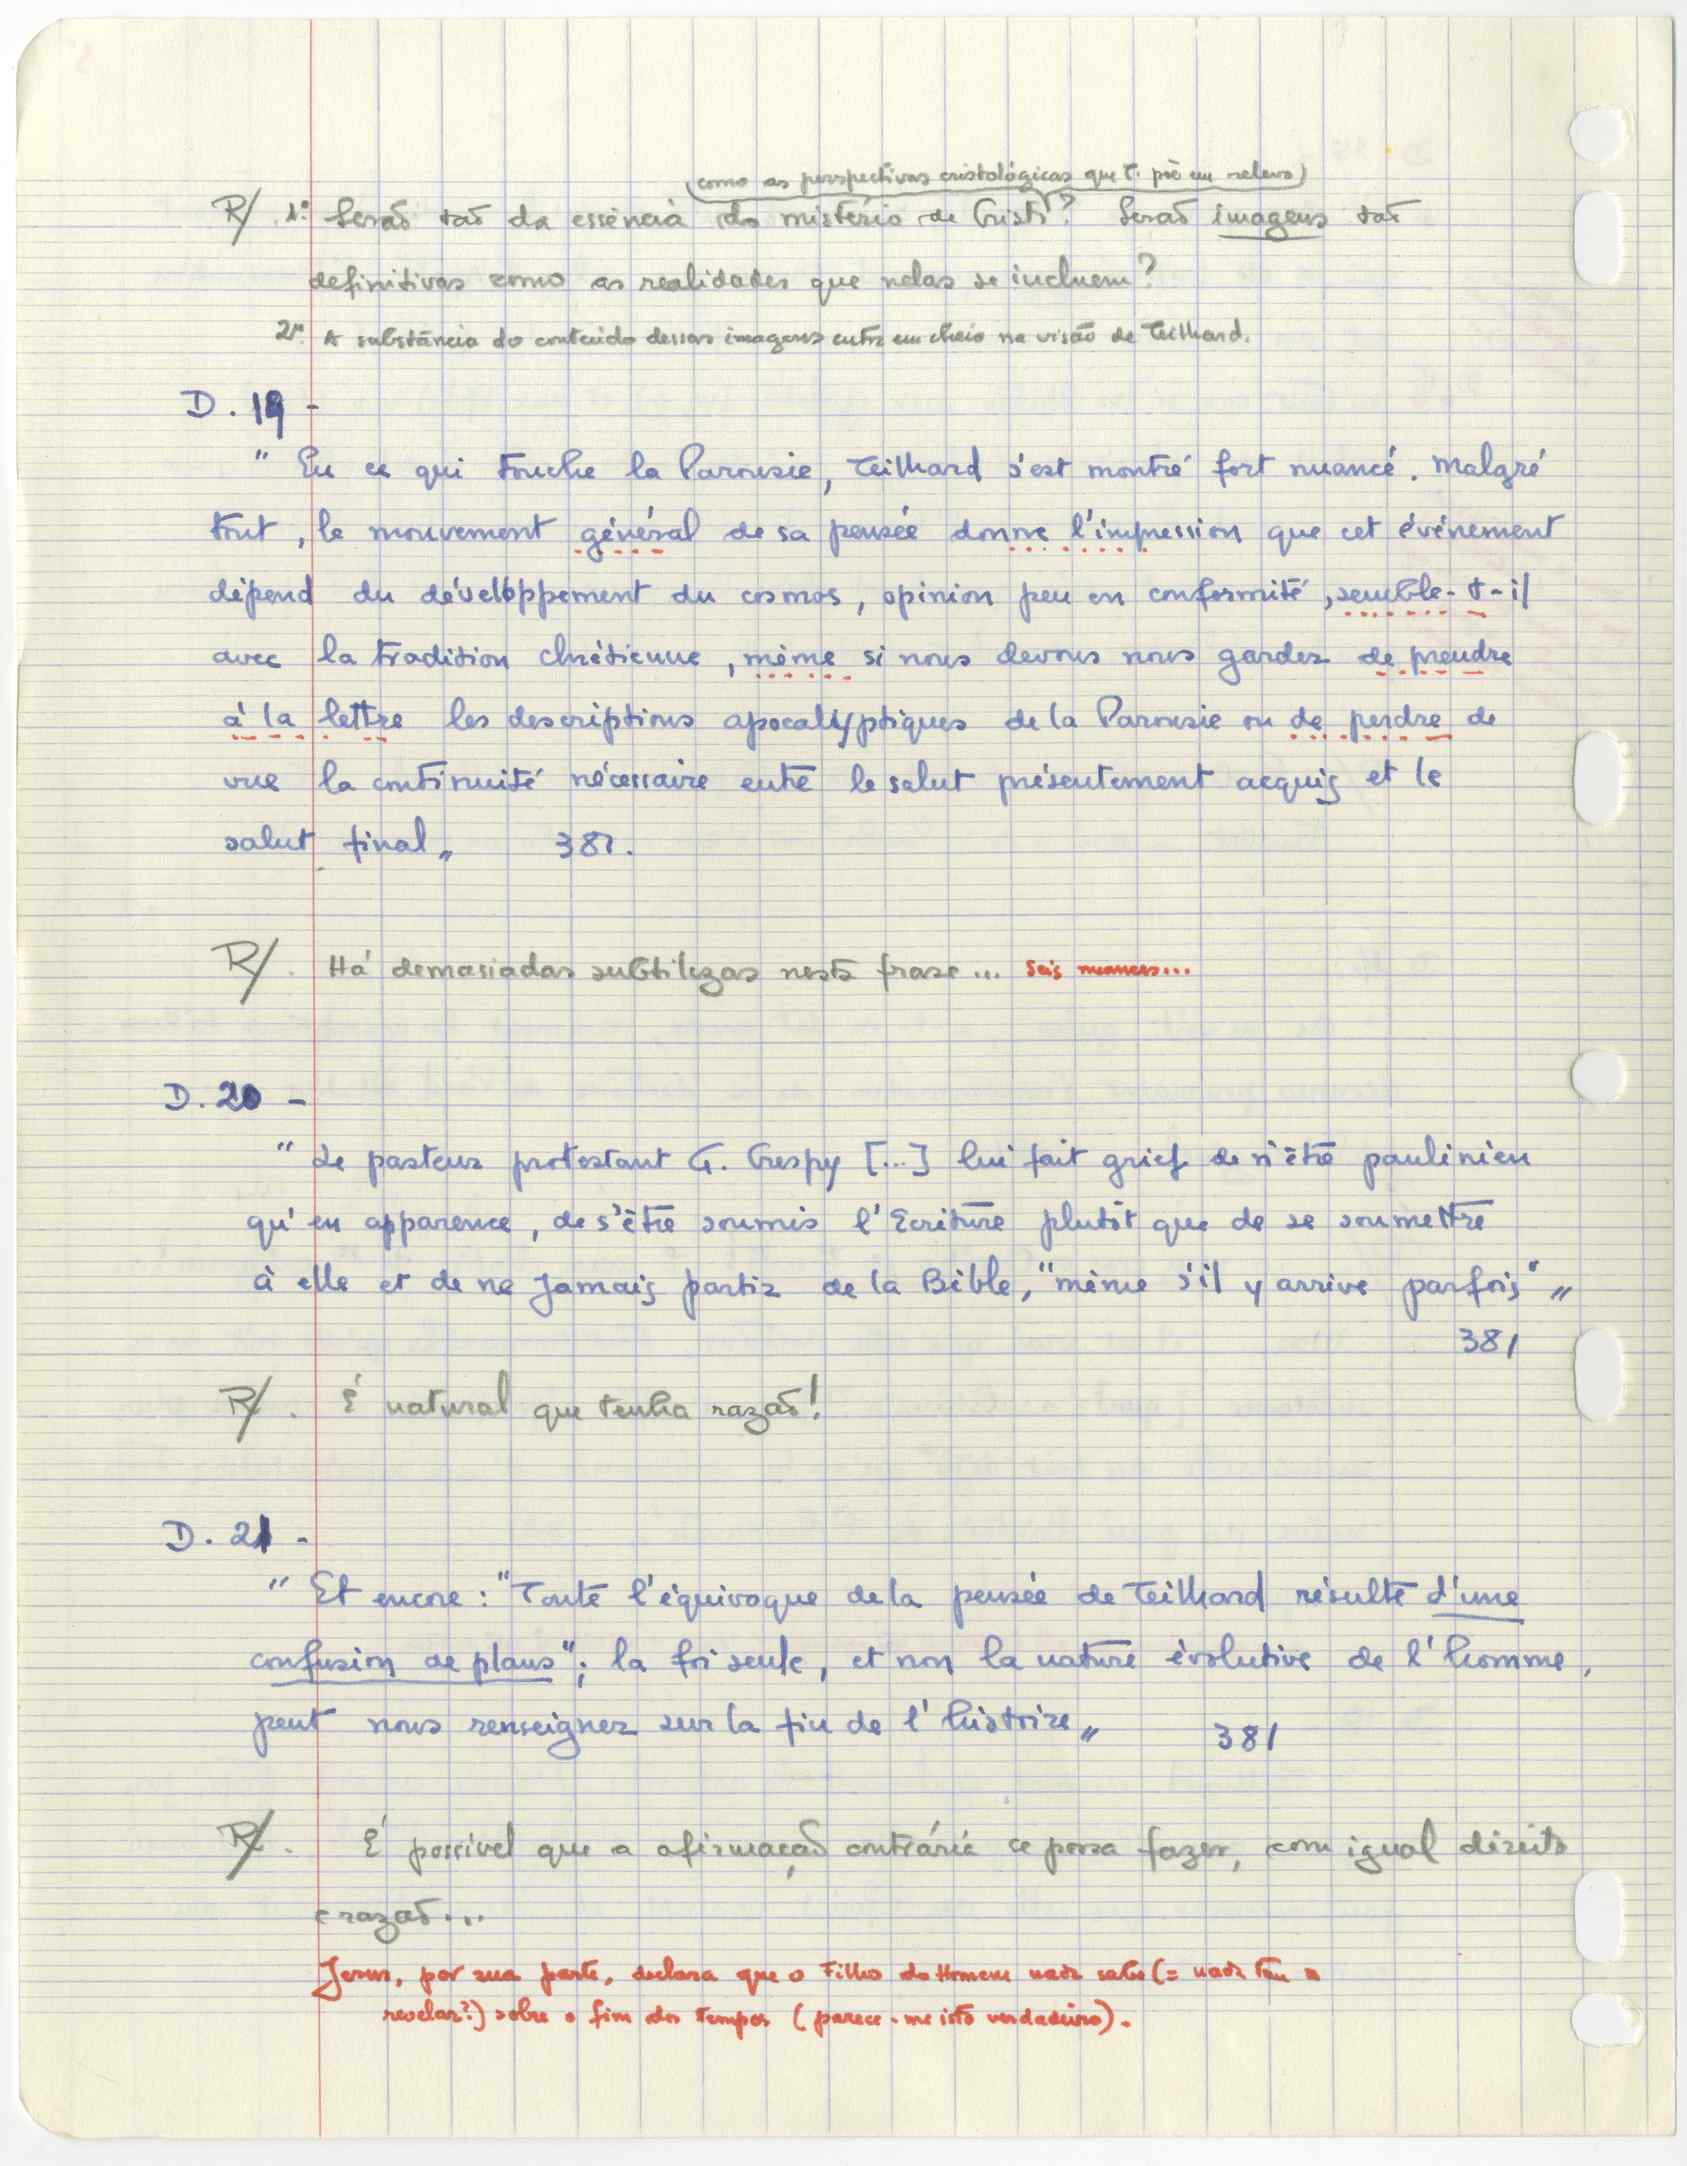 (como as perspectivas cristológicas que T. põe em relevo)
R/ 1º. Serão tão da essência do mistério de Cristo? Serão imagens tão
definitivas como as realidades que nelas se incluem?
2º. A substância do conteúdo dessas imagens entra em cheio na visão de Teilhard.
D. 19 -
" En ce qui touche la Parousie, Teilhard s'est montré fort nuancé. Malgré
tout, le mouvement général de sa pensée donne l'impression que cet événement
dépend du développement du cosmos, opinion peu en conformité, semble-t-il
avec la tradition chrétienne, même si nous devons nous garder de prendre
à la lettre les descriptions apocalyptiques de la Parousie ou de perdre de
vue la continuité nécessaire entre le salut présentement acquis et le
salut final„ 381.
R/. Há demasiadas subtilezas nesta frase... seis nuances...
D. 20 -
" Le pasteur protestant G. Crespy [...] lui fait grief de n'être paulinien
qu'en apparence, de s'être soumis l'Ecriture plutôt que de se soumettre
à elle et de ne jamais partir de la Bible, "même s'il y arrive parfois" „
381
R/. É natural que tenha razão!
D. 21 -
" Et encore : "Toute l'équivoque de la pensée de Teilhard résulte d'une
confusion de plans"; la foi seule, et non la nature évolutive de l'homme,
peut nous renseigner sur la fin de l'histoire„ 381
R/. É possível que a afirmação contrária se possa fazer, com igual direito
e razão...
Jesus, por sua parte, declara que o Filho do Homem nada sabe (= nada tem a
revelar?) sobre o fim dos tempos (parece-me isto verdadeiro).